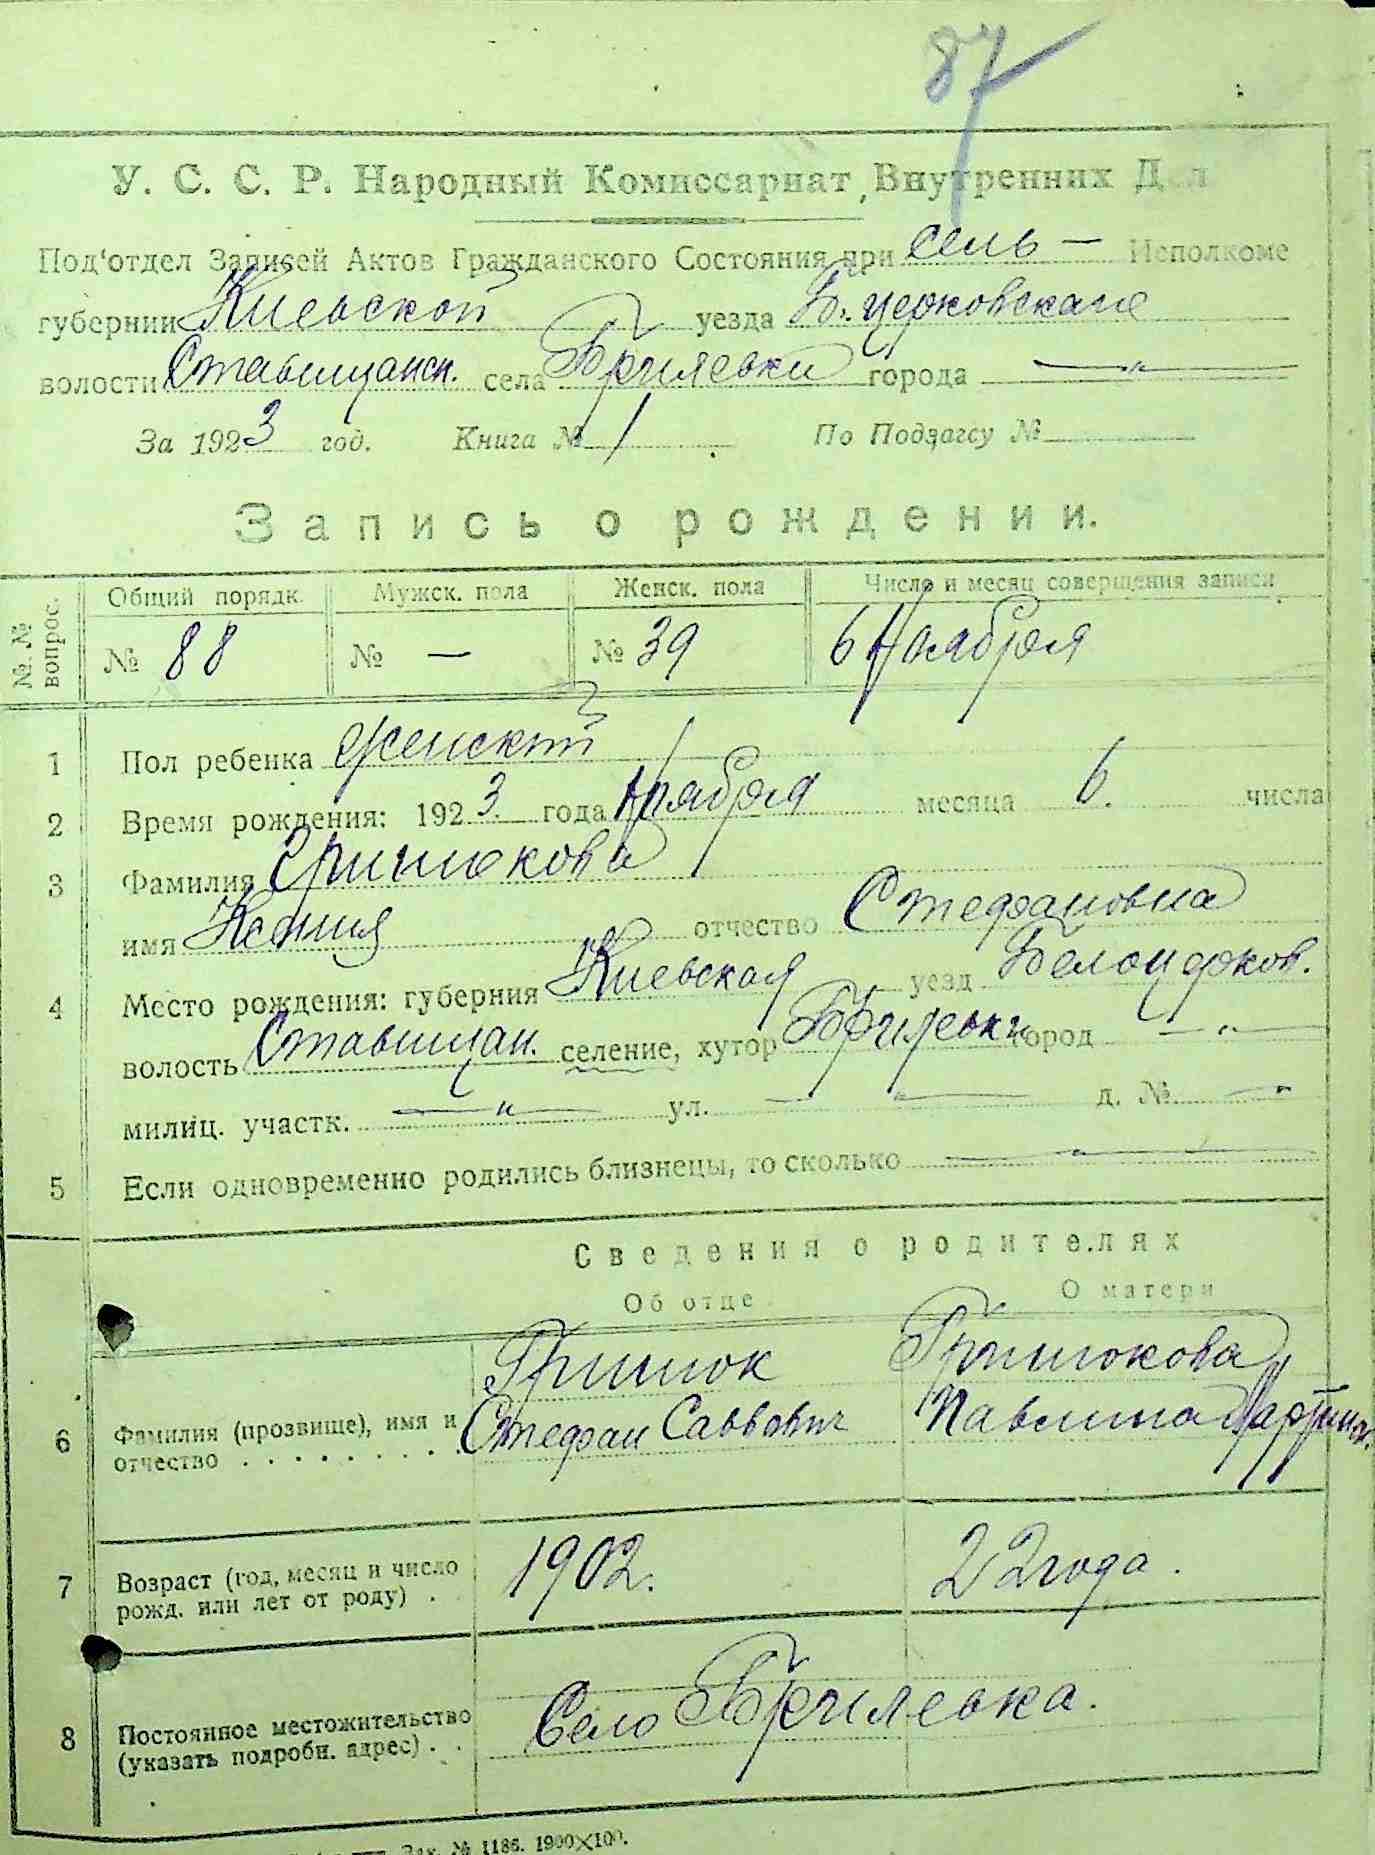 87
У. С. С. Р. Народный Комиссариат Внутренних Дел
Под'отдел Записей Актов Гражданского Состояния при сель — Исполкоме
губернии Киевской уезда Б. церковскаго
волости Ставищанск. села Брилевки города — „ —
За 1923 год. Книга № 1 По Подзагсу №
Запись о рождении.
№. № вопрос. Общий порядк. Мужск. пола Женск. пола Число и месяц совершения записи
№ 88 № — № 39 6 Ноября
1 Пол ребенка женский
2 Время рождения: 1923. года Ноября месяца 6. числа
3 Фамилия Гришокова
имя Ксения отчество Стефановна
4 Место рождения: губерния Киевская уезд Белоцерков.
волость Ставищан. селение, хутор Брилевки город — „ —
милиц. участк. — „ — ул. — „ — д. № — „
5 Если одновременно родились близнецы, то сколько — „ —
Сведения о родителях
Об отце О матери
Гришок Гришокова
6 Фамилия (прозвище), имя и отчество . . . . . . . . . Стефан Саввович Павлина
7 Возраст (год, месяц и число рожд. или лет от роду) . 1902. 22 года.
8 Постоянное местожительство (указать подробн. адрес) . . Село Брилевка.
Зак. № 1186. 1900×100.